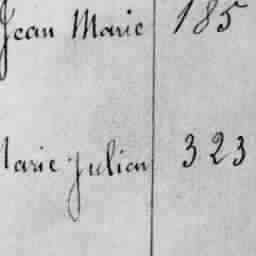 Jean Marie 185
Marie Julien 323